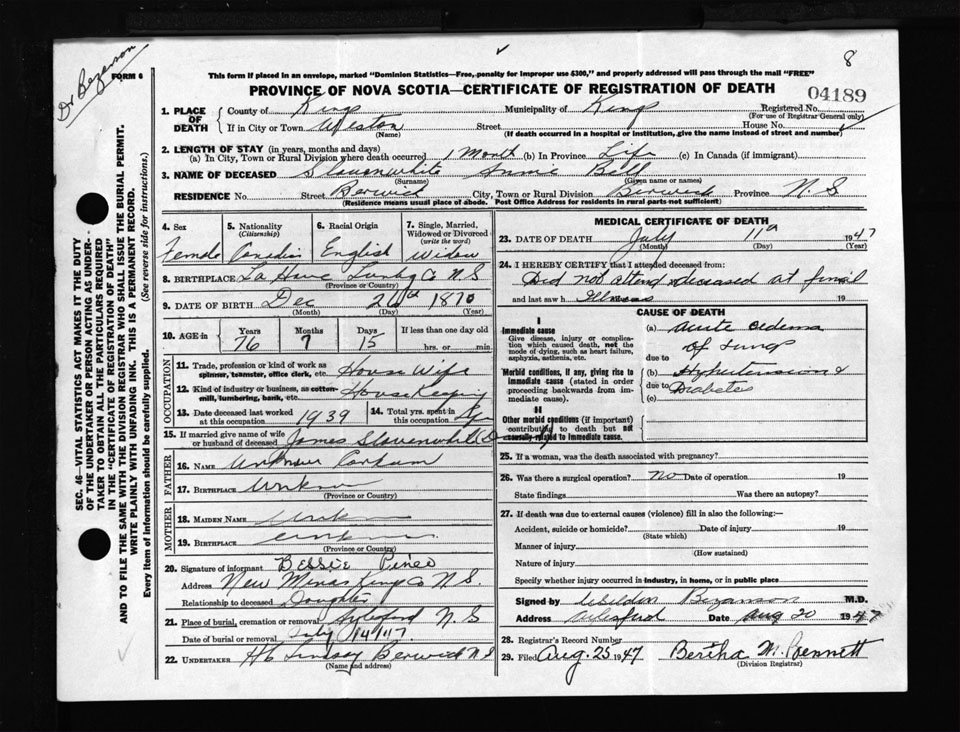 8
Dr Bezanson
FORM 6
This form if placed in an envelope, marked "Dominion Statistics—Free, penalty for improper use $300," and properly addressed will pass through the mail "FREE"
PROVINCE OF NOVA SCOTIA—CERTIFICATE OF REGISTRATION OF DEATH
04189
1. PLACE OF DEATH County of Kings Municipality of Kings Registered No.
(For use of Registrar General only)
If in City or Town Weston Street House No.
(Name) (If death occurred in a hospital or institution, give the name instead of street and number)
2. LENGTH OF STAY (in years, months and days)
(a) In City, Town or Rural Division where death occurred 1 Month (b) In Province Life (c) In Canada (if immigrant)
3. NAME OF DECEASED Slavenwhite Annie Bell
(Surname) (Given name or names)
RESIDENCE No. Street Berwick City, Town or Rural Division Berwick Province N.S
(Residence means usual place of abode. Post Office Address for residents in rural parts not sufficient)
SEC. 46—VITAL STATISTICS ACT MAKES IT THE DUTY
OF THE UNDERTAKER OR PERSON ACTING AS UNDER-
TAKER TO OBTAIN ALL THE PARTICULARS REQUIRED
IN THE "CERTIFICATE OF REGISTRATION OF DEATH"
AND TO FILE THE SAME WITH THE DIVISION REGISTRAR WHO SHALL ISSUE THE BURIAL PERMIT.
WRITE PLAINLY WITH UNFADING INK. THIS IS A PERMANENT RECORD.
Every item of information should be carefully supplied. (See reverse side for instructions.)
4. Sex 5. Nationality (Citizenship) 6. Racial Origin 7. Single, Married, Widowed or Divorced (write the word)
Female Canadian English Widow
8. BIRTHPLACE La Have Lunbg Co N.S
(Province or Country)
9. DATE OF BIRTH Dec 26th 1870
(Month) (Day) (Year)
10. AGE in Years Months Days If less than one day old
76 7 15 hrs. or min.
OCCUPATION
11. Trade, profession or kind of work as spinner, teamster, office clerk, etc. House Wife
12. Kind of industry or business, as cotton-mill, lumbering, bank, etc. House Keeping
13. Date deceased last worked at this occupation 1939 14. Total yrs. spent in this occupation
15. If married give name of wife or husband of deceased James Slavenwhite
FATHER
16. NAME Unknown Corkum
17. BIRTHPLACE Unknown
(Province or Country)
MOTHER
18. MAIDEN NAME Unknown
19. BIRTHPLACE Unknown
(Province or Country)
20. Signature of informant Bessie Pineo
Address New Minas Kings Co N.S.
Relationship to deceased Daughter
21. Place of burial, cremation or removal Aylesford N S
Date of burial or removal July 14/47
22. UNDERTAKER H6 Lindsay Berwick N.S
(Name and address)
MEDICAL CERTIFICATE OF DEATH
23. DATE OF DEATH July 11th 1947
(Month) (Day) (Year)
24. I HEREBY CERTIFY that I attended deceased from:
Did not attend deceased at final
and last saw h Illness 19
CAUSE OF DEATH
I
Immediate cause
Give disease, injury or complication which caused death, not the mode of dying, such as heart failure, asphyxia, asthenia, etc.
(a) acute oedema
of lungs
due to
Morbid conditions, if any, giving rise to immediate cause (stated in order proceeding backwards from immediate cause).
(b) Hypertension &
due to Diabetes
(c)
II
Other morbid conditions (if important) contributing to death but not causally related to immediate cause.
25. If a woman, was the death associated with pregnancy?
26. Was there a surgical operation? No Date of operation 19
State findings Was there an autopsy?
27. If death was due to external causes (violence) fill in also the following:—
Accident, suicide or homicide? Date of injury 19
(State which)
Manner of injury
(How sustained)
Nature of injury
Specify whether injury occurred in industry, in home, or in public place
Signed by Weldon Bezanson M.D.
Address Aylesford Date Aug 20 1947
28. Registrar's Record Number
29. Filed Aug. 25, 1947 Bertha M. Bennett
(Division Registrar)